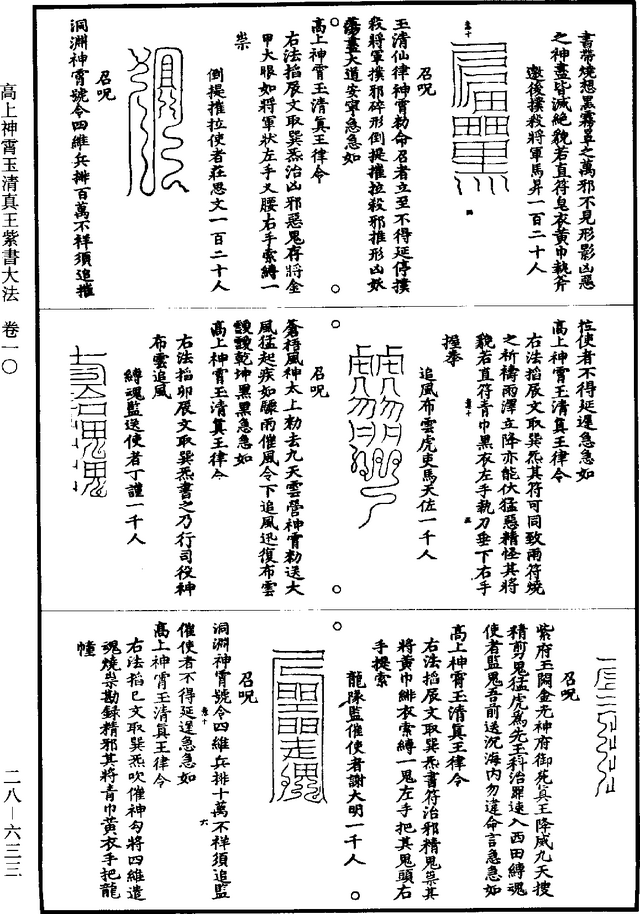 書帶燒想黑霧罩之萬邪不見形影凶惡
之神盡皆滅絕貌若直符皂衣黃巾執斧
邀後撲殺將軍馬昇一百二十人
召呪
玉清仙律神霄勅命召者立至不得延停撲
殺將軍撲邪碎形倒提摧拉殺邪摧形凶妖
蕩盡大道安寧急急如
高上神霄玉清真王律令
右法搯辰文取巽炁治凶邪惡鬼存將金
甲大眼如將軍狀左手叉腰右手索縛一
祟
倒提摧拉使者莊思文一百二十人
召呪
洞淵神霄號令四維兵排百萬不祥須追摧
拉使者不得延遲急急如
高上神霄玉清真王律令
右法搯辰文取巽炁其符可同致雨符燒
之祈禱雨澤立降亦能伏猛惡精怪其將
貌若直符青巾黑衣左手執刀垂下右手
握拳
追風布雲虎吏馬天佐一千人
召呪
蒼梧風神太上勅去九天雲營神霄勅送大
風猛起疾如驟雨催風令下追風迅復布雲
靉靉乾坤黑黑急急如
高上神霄玉清真王律令
右法搯卯辰文取巽炁書之乃行司役神
布雲追風
縛魂監送使者丁謹一千人
召呪
紫府玉闕金光神府御死真王降威九天搜
精剪鬼猛虎為先王科治罪速入西田縛魂
使者監鬼吾前送沉海內勿違命言急急如
高上神霄玉清真王律令
右法搯辰文取巽炁書符治邪精鬼祟其
將黃巾緋衣索縛一鬼左手把其鬼頭右
手提索
龍隊監催使者謝大明一千人
召呪
洞淵神霄號令四維兵排十萬不祥須追監
催使者不得延遲急急如
高上神霄玉清真王律令
右法搯巳文取巽炁吹催神勾將四維遣
魂燒祟勘錄精邪其將青巾黃衣手把龍
幢
高上神霄玉清真王紫書大法 卷一〇
二八—六三三